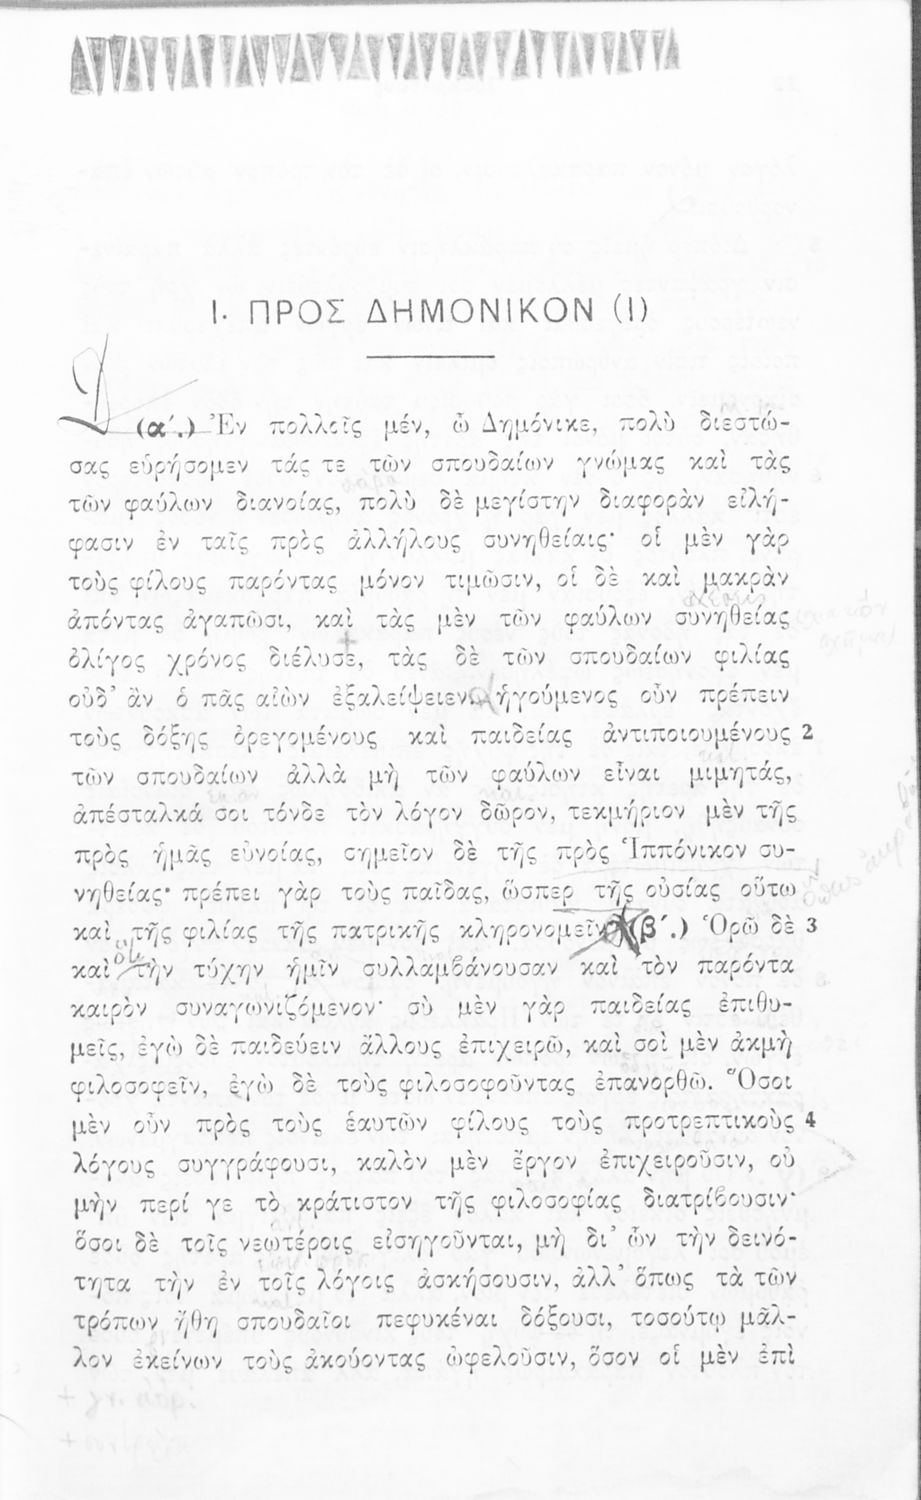 Ι. ΠΡΟΣ ΔΗΜΟΝΙΚΟΝ (Ι)
(α΄.) Ἐν πολλοῖς μέν, ὦ Δημόνικε, πολὺ διεστώ-
σας εὑρήσομεν τάς τε τῶν σπουδαίων γνώμας καὶ τὰς
τῶν φαύλων διανοίας, πολὺ δὲ μεγίστην διαφορὰν εἰλή-
φασιν ἐν ταῖς πρὸς ἀλλήλους συνηθείαις· οἱ μὲν γὰρ
τοὺς φίλους παρόντας μόνον τιμῶσιν, οἱ δὲ καὶ μακρὰν
ἀπόντας ἀγαπῶσι, καὶ τὰς μὲν τῶν φαύλων συνηθείας
ὀλίγος χρόνος διέλυσε, τὰς δὲ τῶν σπουδαίων φιλίας
οὐδ’ ἂν ὁ πᾶς αἰὼν ἐξαλείψειεν. ἡγούμενος οὖν πρέπειν
τοὺς δόξης ὀρεγομένους καὶ παιδείας ἀντιποιουμένους 2
τῶν σπουδαίων ἀλλὰ μὴ τῶν φαύλων εἶναι μιμητάς,
ἀπέσταλκά σοι τόνδε τὸν λόγον δῶρον, τεκμήριον μὲν τῆς
πρὸς ἡμᾶς εὐνοίας, σημεῖον δὲ τῆς πρὸς Ἱππόνικον συ-
νηθείας· πρέπει γὰρ τοὺς παῖδας, ὥσπερ τῆς οὐσίας οὕτω
καὶ τῆς φιλίας τῆς πατρικῆς κληρονομεῖν. (β΄.) Ὁρῶ δὲ 3
καὶ τὴν τύχην ἡμῖν συλλαμβάνουσαν καὶ τὸν παρόντα
καιρὸν συναγωνιζόμενον· σὺ μὲν γὰρ παιδείας ἐπιθυ-
μεῖς, ἐγὼ δὲ παιδεύειν ἄλλους ἐπιχειρῶ, καὶ σοὶ μὲν ἀκμὴ
φιλοσοφεῖν, ἐγὼ δὲ τοὺς φιλοσοφοῦντας ἐπανορθῶ. Ὅσοι
μὲν οὖν πρὸς τοὺς ἑαυτῶν φίλους τοὺς προτρεπτικοὺς 4
λόγους συγγράφουσι, καλὸν μὲν ἔργον ἐπιχειροῦσιν, οὐ
μὴν περί γε τὸ κράτιστον τῆς φιλοσοφίας διατρίβουσιν·
ὅσοι δὲ τοῖς νεωτέροις εἰσηγοῦνται, μὴ δι’ ὧν τὴν δεινό-
τητα τὴν ἐν τοῖς λόγοις ἀσκήσουσιν, ἀλλ’ ὅπως τὰ τῶν
τρόπων ἤθη σπουδαῖοι πεφυκέναι δόξουσι, τοσούτῳ μᾶλ-
λον ἐκείνων τοὺς ἀκούοντας ὠφελοῦσιν, ὅσον οἱ μὲν ἐπὶ